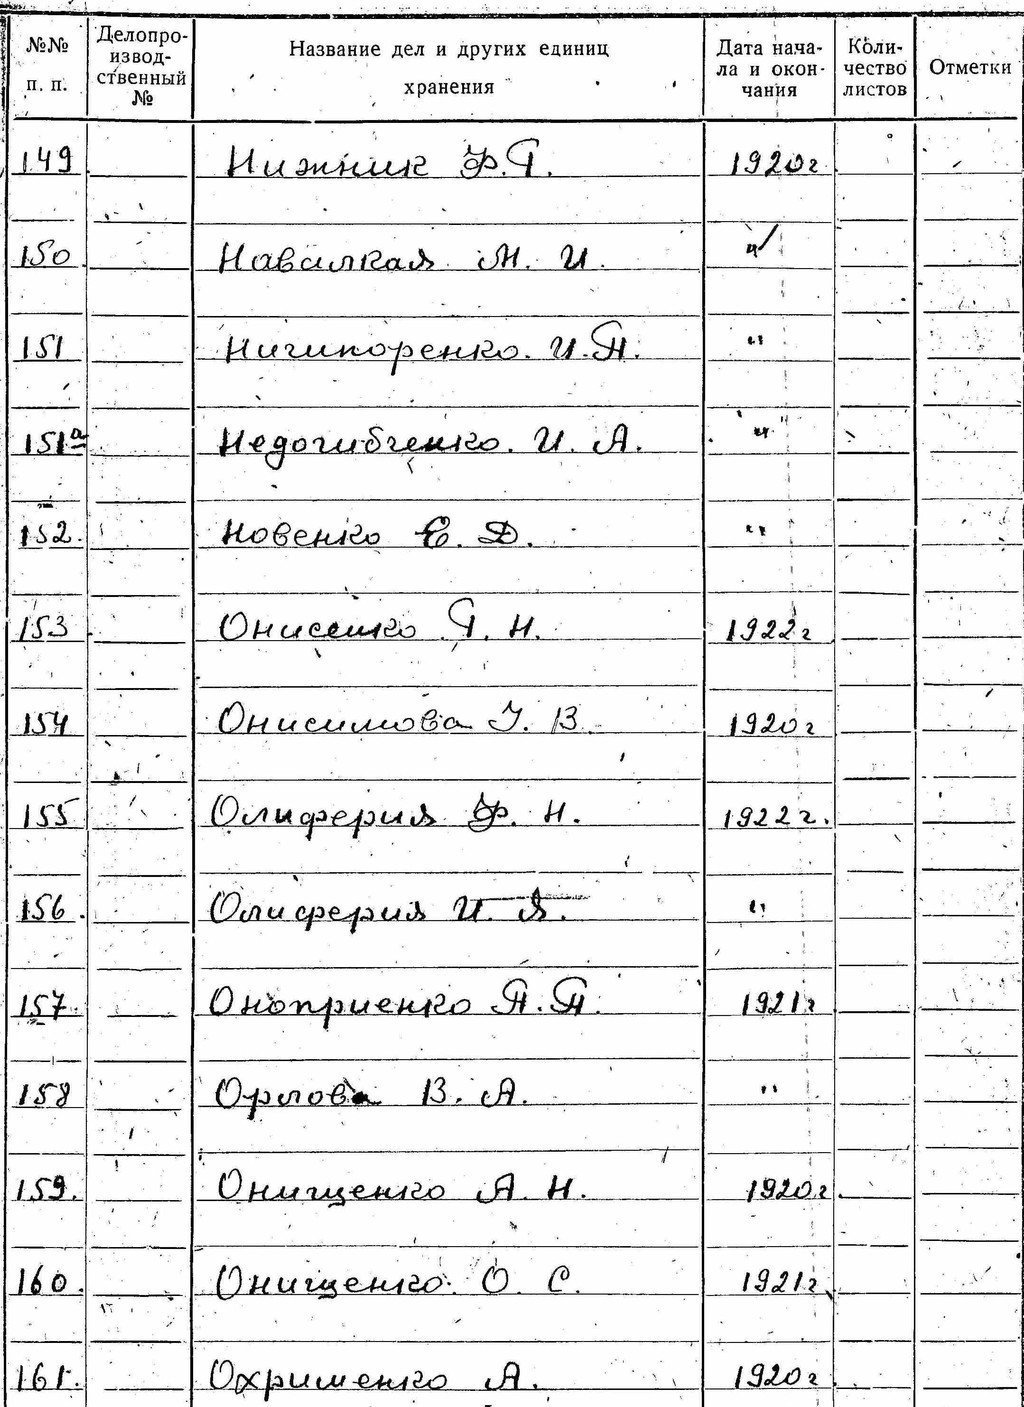 №№ п. п. Делопроизводственный № Название дел и других единиц хранения Дата начала и окончания Количество листов Отметки
149 Нижник Ф.Г. 1920г
150 Навалкая М. И. "
151 Ничипоренко. И.П. "
151а Недогибченко. И. А. "
152. Новенко Е. Д. "
153 Онисенко Г. Н. 1922г
154 Онисимова У. В. 1920г
155 Олиферия Ф. Н. 1922г.
156. Олиферия И. Я. "
157. Оноприенко П.П. 1921г
158 Орлова В. А. "
159. Онищенко А. Н. 1920г
160. Онищенко О. С. 1921г
161. Охрименко А. 1920г